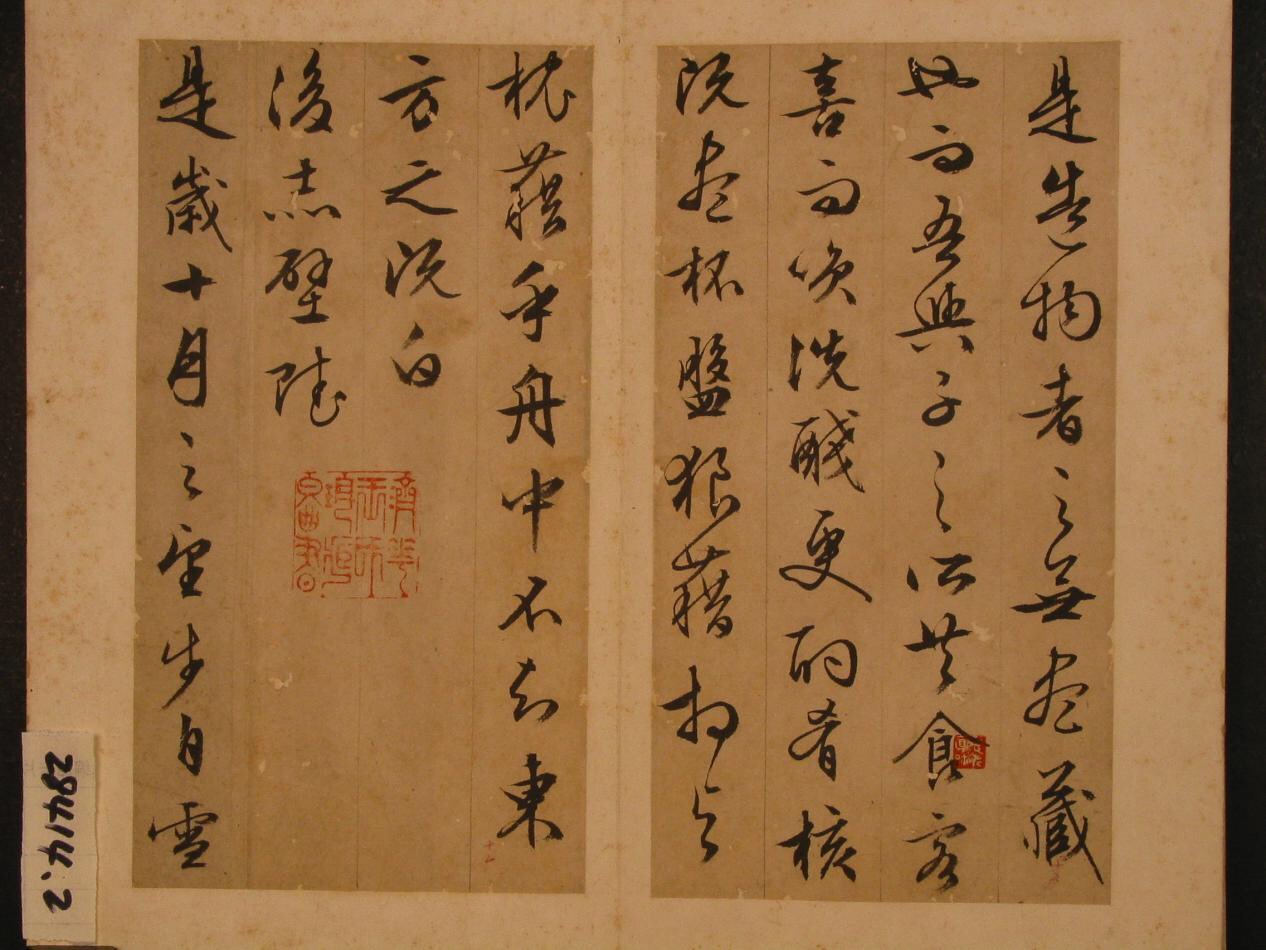 是造物者之無盡藏
也而吾與子之所共食客
喜而笑洗醆更酌肴核
既盡杯盤狼藉相与
枕藉乎舟中不知東
方之既白
後赤壁賦
是歲十月之望步自雪
28414.2